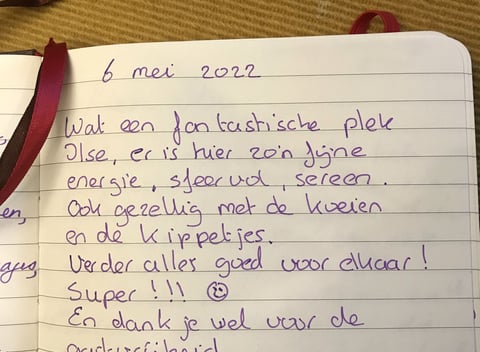 6 mei 2022
Wat een fantastische plek
Ilse, er is hier zo'n fijne
energie, sfeervol, sereen.
Ook gezellig met de koeien
en de kippetjes.
Verder alles goed voor elkaar!
Super!!! ☺
En dank je wel voor de